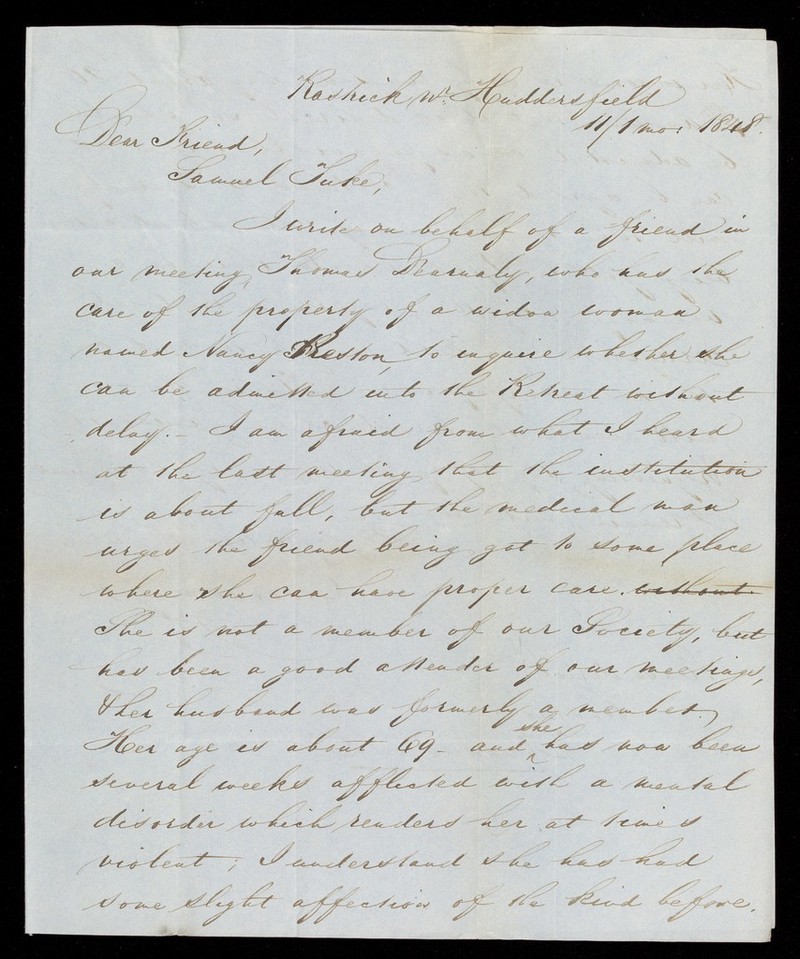 Rastrick Nr. Huddersfield
11/1 mo: 1848.
Dear Friend,
Samuel Tuke,
I write on behalf of a friend in
our meeting, Thomas Dearnaly, who has the
care of the property of a widow woman
named Nancy Preston, to inquire whether she
can be admitted into the Retreat without
delay. - I am afraid from what I heard
at the last meeting that the institution
is about full, but the medical man
urges the friend being got to some place
where she can have proper care. without
She is not a member of our Society, but
has been a good attender of our meetings,
& her husband was formerly a member.
Her age is about 69 - and she has now been
several weeks afflicted with a mental
disorder which renders her at times
violent; I understand she has had
some slight affection of the kind before.